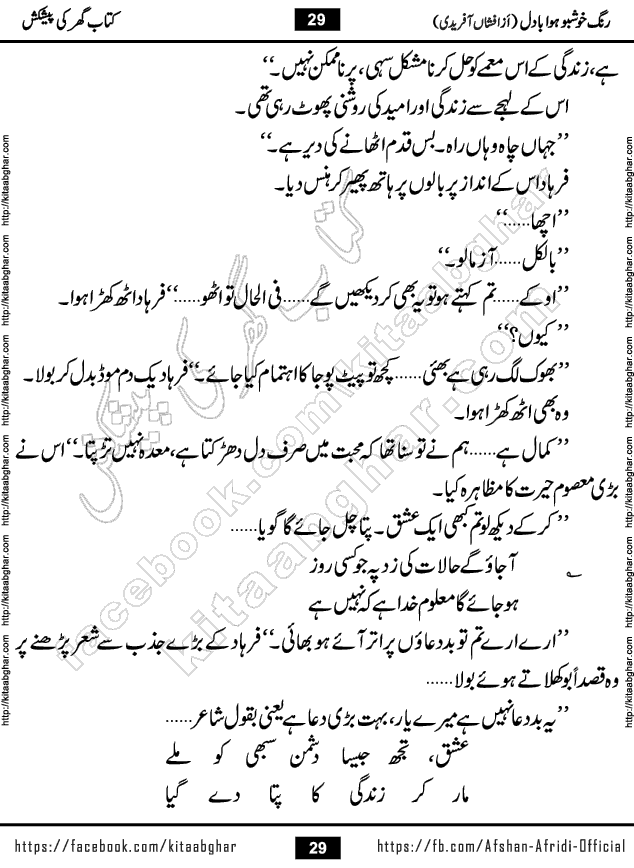 رنگ خوشبو ہوا بادل (از افشاں آفریدی) 29 کتاب گھر کی پیشکش
ہے، زندگی کے اس معمے کو حل کرنا مشکل سہی، پر ناممکن نہیں۔‘‘
اس کے لہجے سے زندگی اور امید کی روشنی پھوٹ رہی تھی۔
’’جہاں چاہ وہاں راہ۔ بس قدم اٹھانے کی دیر ہے۔‘‘
فرہاد اس کے انداز پر بالوں پر ہاتھ پھیر کر ہنس دیا۔
’’اچھا......‘‘
’’بالکل......آزمالو۔‘‘
’’اوکے......تم کہتے ہو تو یہ بھی کر دیکھیں گے......فی الحال تو اٹھو......‘‘ فرہاد اٹھ کھڑا ہوا۔
’’کیوں؟‘‘
’’بھوک لگ رہی ہے بھئی......کچھ تو پیٹ پوجا کا اہتمام کیا جائے۔‘‘ فرہاد یک دم موڈ بدل کر بولا۔
وہ بھی اٹھ کھڑا ہوا۔
’’کمال ہے......ہم نے تو سنا تھا کہ محبت میں صرف دل دھڑکتا ہے، معدہ نہیں تڑپتا۔‘‘ اس نے
بڑی معصوم حیرت کا مظاہرہ کیا۔
’’کر کے دیکھ لو تم کبھی ایک عشق۔ پتا چل جائے گا گویا......
آ جاؤ گے حالات کی زد پہ جو کسی روز
ہو جائے گا معلوم خدا ہے کہ نہیں ہے
’’ارے ارے تم تو بددعاؤں پر اتر آئے ہو بھائی۔‘‘ فرہاد کے بڑے جذب سے شعر پڑھنے پر
وہ قصداً بوکھلاتے ہوئے بولا......
’’یہ بددعا نہیں ہے میرے یار، بہت بڑی دعا ہے یعنی بقول شاعر......
عشق، تجھ جیسا دشمن سبھی کو ملے
مار کر زندگی کا پتا دے گیا
https://facebook.com/kitaabghar 29 https://fb.com/Afshan-Afridi-Official
http://kitaabghar.com http://kitaabghar.com http://kitaabghar.com http://kitaabghar.com http://kitaabghar.com http://kitaabghar.com
http://kitaabghar.com http://kitaabghar.com http://kitaabghar.com http://kitaabghar.com http://kitaabghar.com http://kitaabghar.com
کتاب گھر کی پیشکش
facebook.com/kitaabghar
kitaabghar.com